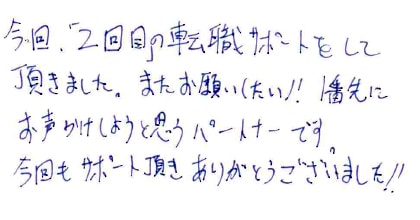 今回、「2回目」の転職サポートをして
頂きました。またお願いしたい!! 1番先に
お声がけしようと思うパートナーです。
今回もサポート頂きありがとうございました!!